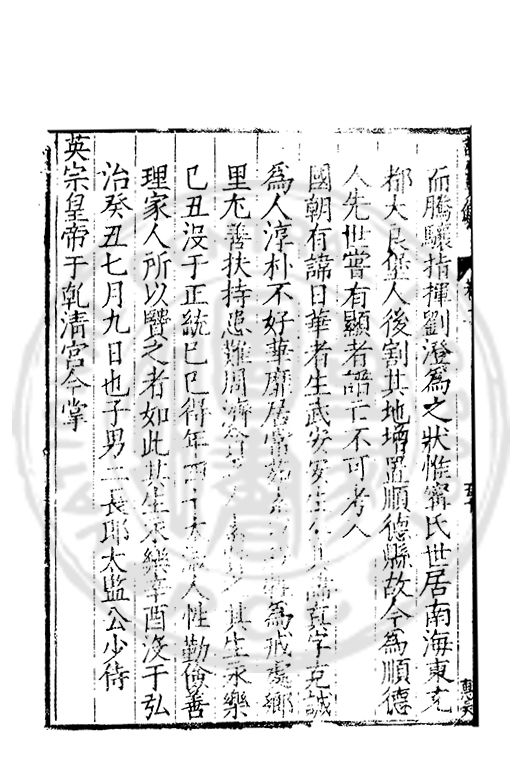 而騰驤指揮劉澄為之狀惟甯氏世居南海東充
都大良堡人後割其地增置順德縣故今為順德
人先世嘗有顯者譜亡不可考入
國朝有諱日華者生武安安生公諱真字克誠
為人淳朴不好華靡居常為戒處鄉
里尤善扶持患難周濟其生永樂
己丑沒于正統己巳得年四十人性勤儉善
理家人所以賢之者如此其生永樂辛酉沒于弘
治癸丑七月九日也子男二長即太監公少侍
英宗皇帝于乹清宮今掌